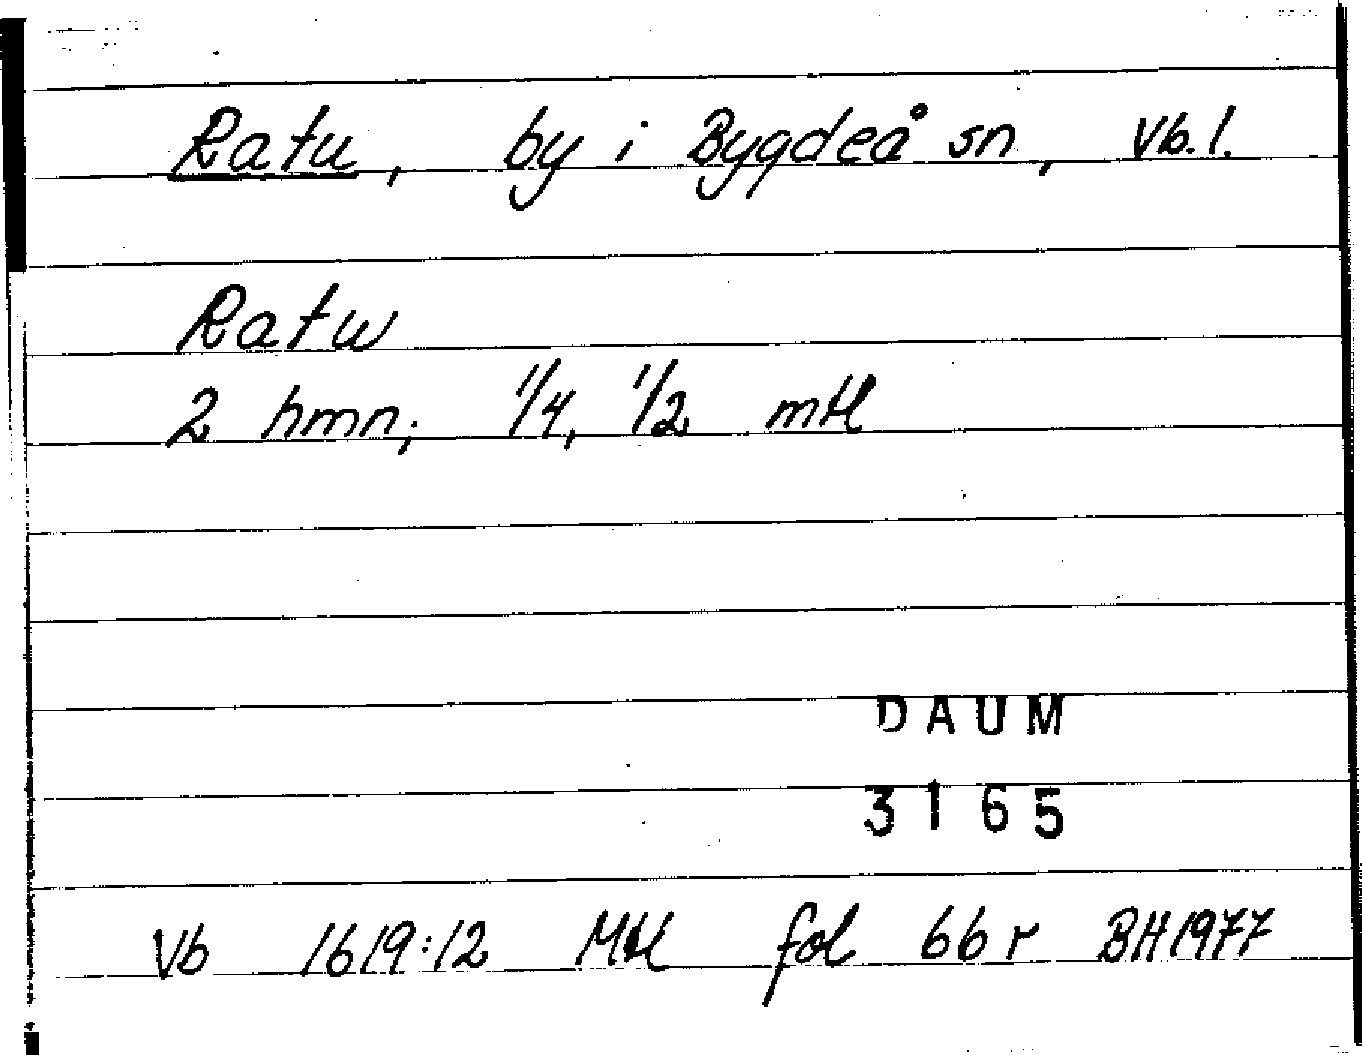 Ratu, by i Bygdeå sn, Vb.l.
Ratw
2 hmn; 1/4, 1/2 mtl
DAUM
3165
Vb 1619:12 Mtl fol 66 r BH1977